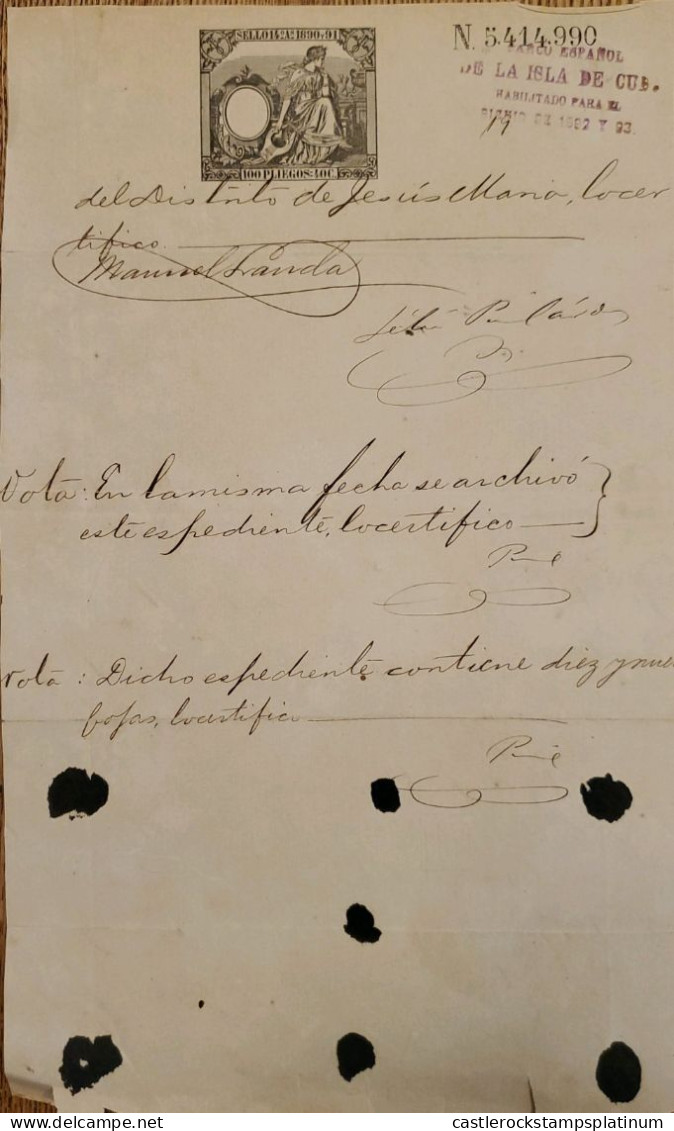 SELLO 14º Aº 1890 y 91
100 PLIEGOS: 40C.
N. 5.414.990
BANCO ESPAÑOL
DE LA ISLA DE CUBA
HABILITADO PARA EL
BIENIO DE 1892 Y 93.
19
del Distrito de Jesús Maria, locer
tifico.
Manuel Landa
Nota: En la misma fecha se archivó
este espediente, lo certifico
Nota: Dicho espediente contiene diez y nueve
fojas, lo certifico
castlerockstampsplatinum